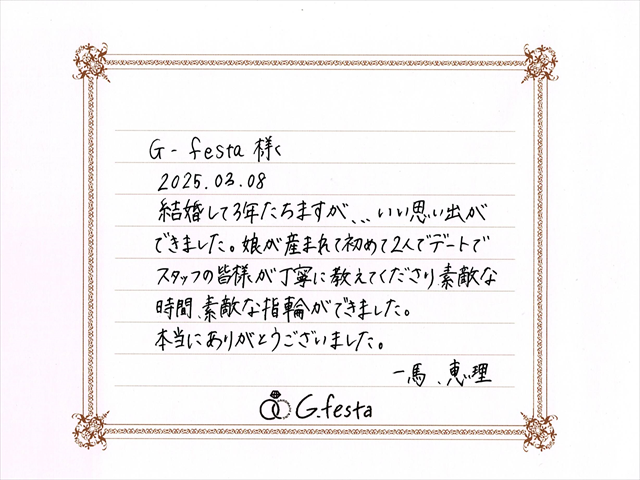 G-festa 様く
2025.03.08
結婚して3年たちますが、、、いい思い出が
できました。娘が産まれて初めて2人でデートで
スタッフの皆様が丁寧に教えてくださり素敵な
時間、素敵な指輪ができました。
本当にありがとうございました。
一馬、恵理
G.festa